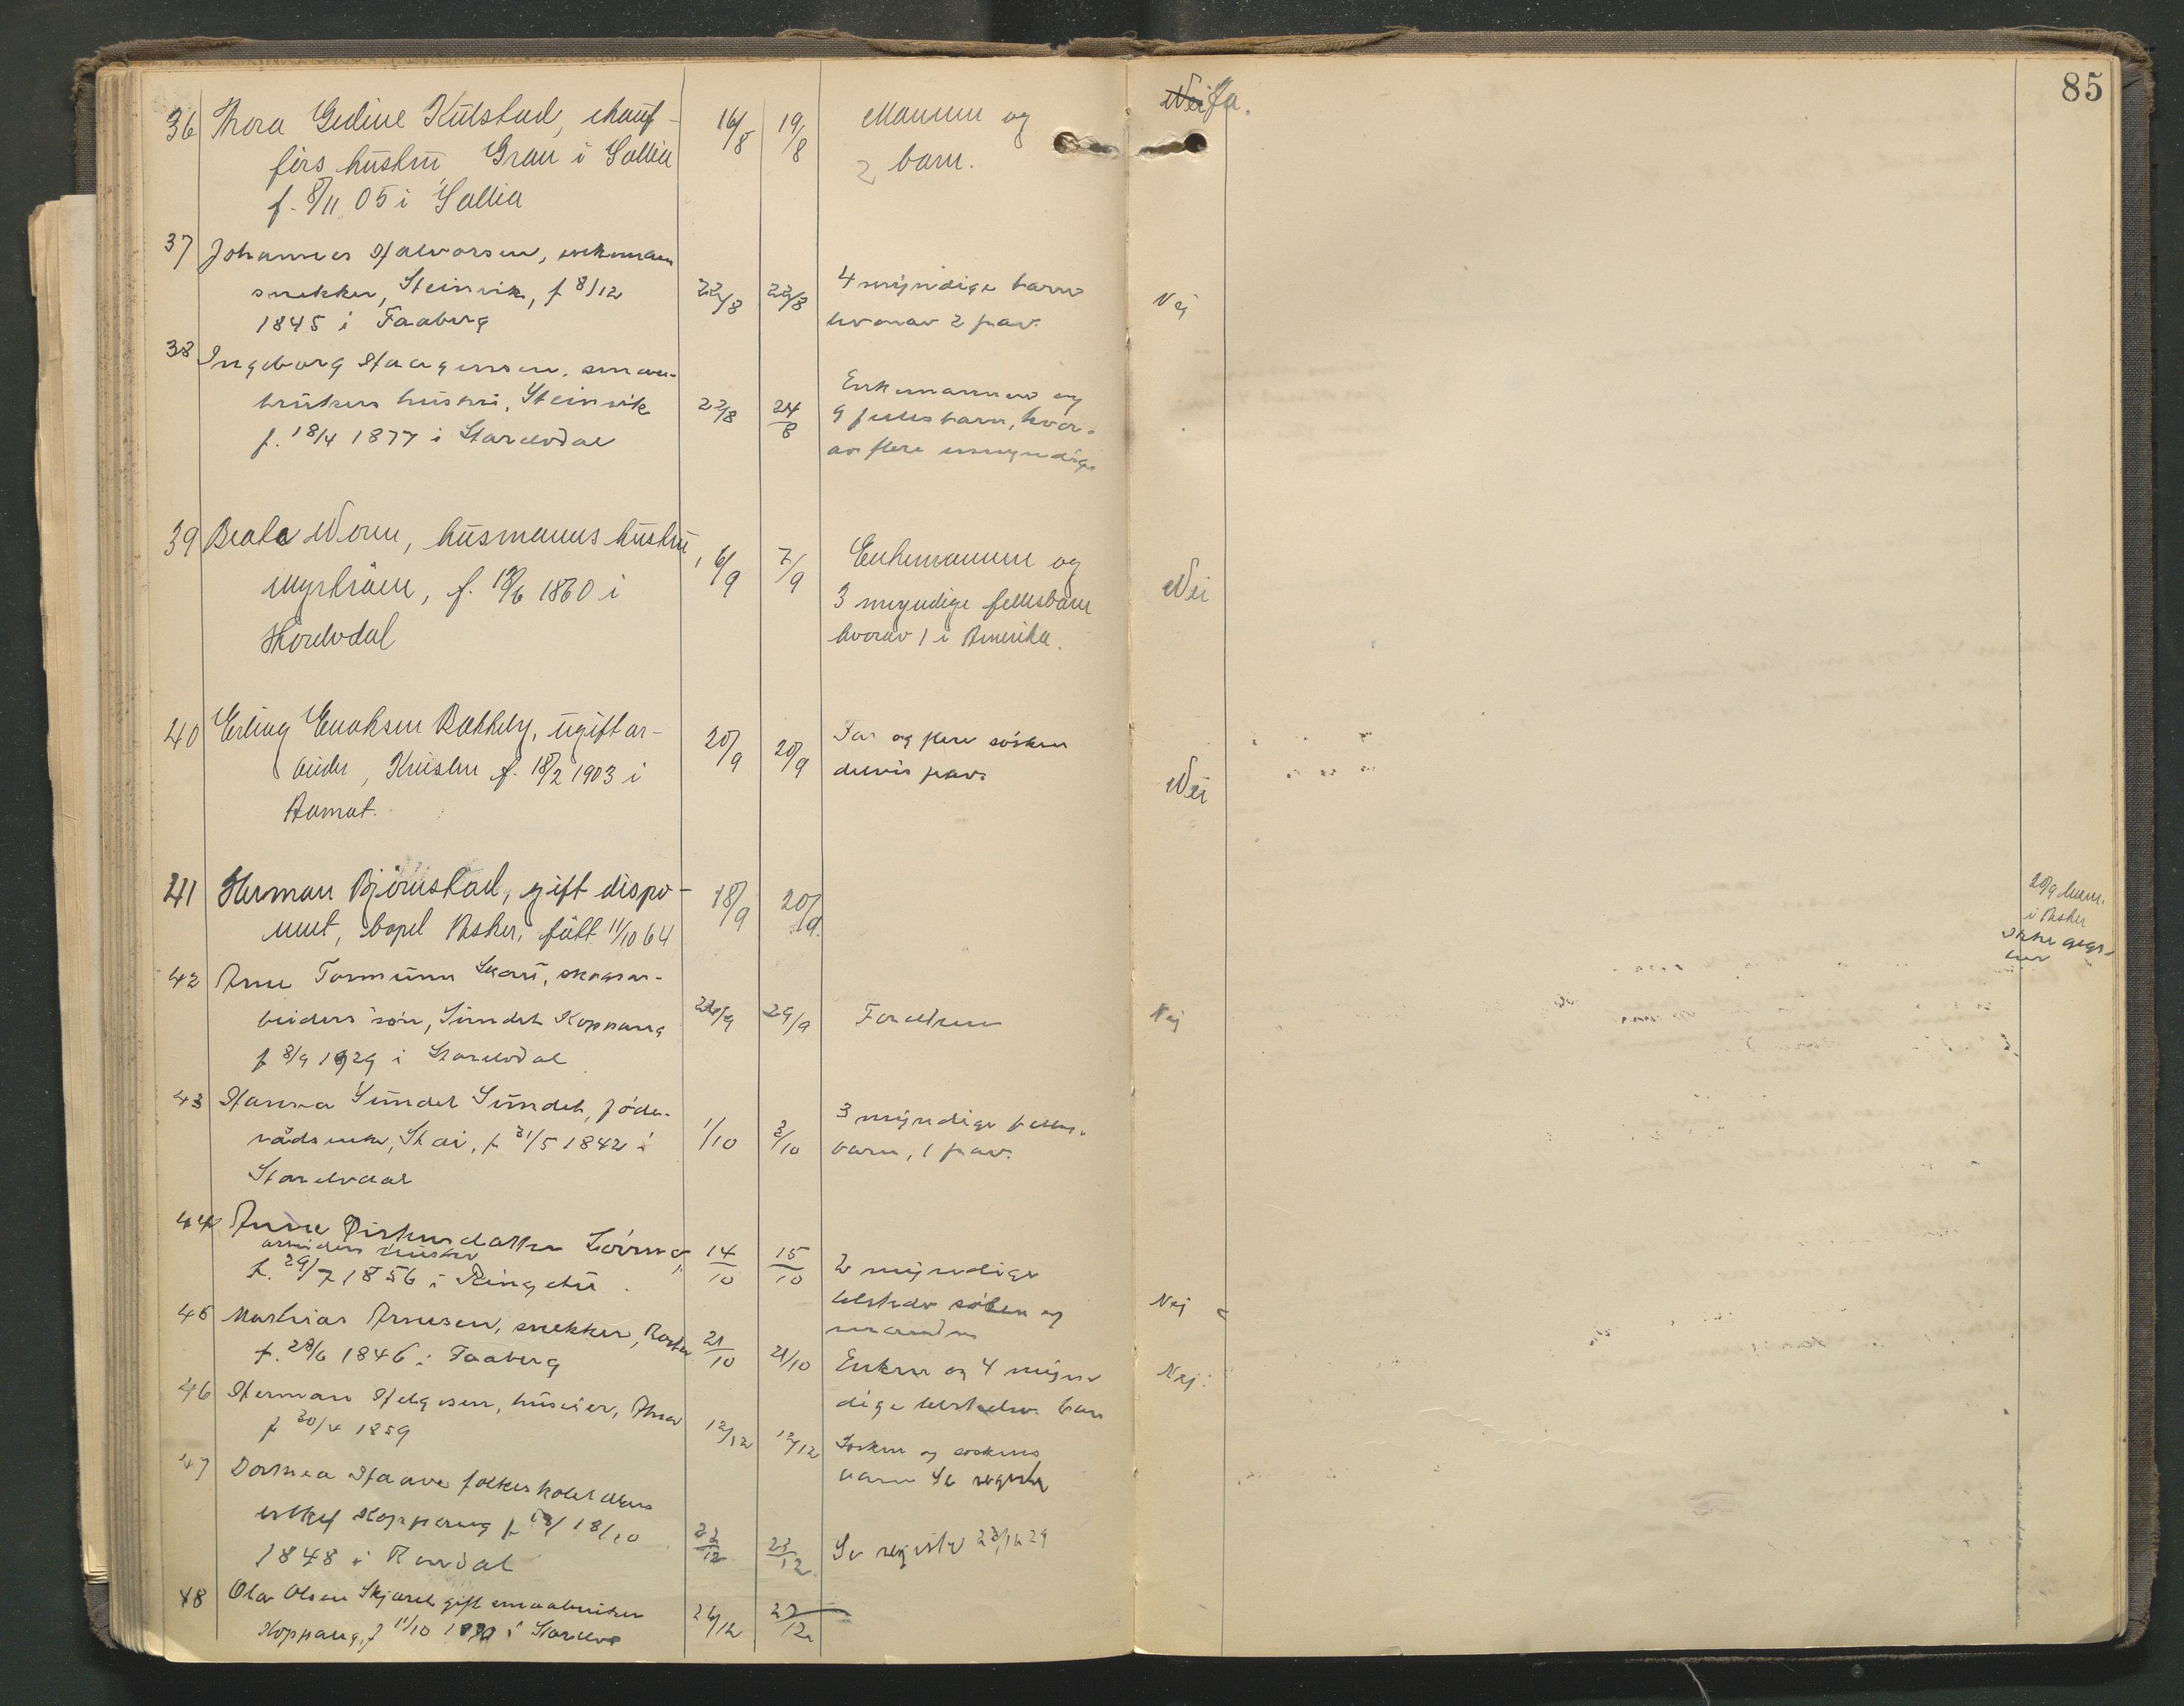 85
36 Thora Gedine Kulstad, chauf-
førs hustru, Grau i Sollia
f. 8/11 05 i Sollia
16/8 19/8
Mannen og
2 barn.
Nei Ja.
37 Johannes Halvorsen, enkemann
snekker, Steinvik, f 8/12
1845 i Faaberg
22/8 22/8
4 myndige barn
hvorav 2 frav.
Nej
38 Ingeborg Haagensen, smaa-
brukers hustru, Steinvik
f. 18/4 1877 i Storelvdal
22/8 24/8
Enkemannen og
9 fellesbarn, hvor-
av flere umyndige
39 Beate Moen, husmanns hustru,
f. 1860 i
Storelvdal
6/9 7/9
Enkemannen og
3 myndige fellesbarn
hvorav 1 i Amerika.
Nei
40 Erling Enoksen Bakkely, ugift ar-
beider, f. 18/2 1903 i
Aamot.
20/9 20/9
Far og flere søsken
delvis frav.
Nei
41 Herman Bjørnstad, gift dispo-
nent, bopel Asker, født 11/10 64
18/9 20/9
20/9
i Asker
ikke
42 Arne Tormund Skou, skogsar-
beiders søn, Sundet Koppang
f 8/9 1929 i Storelvdal
29/9
Foreldrene
Nej
43 Hanna Sundet Sundet, føde-
råds enke, Stai, f 31/5 1842 i
Storelvdal
1/10 3/10
3 myndige felles-
barn, 1 frav.
44 Anne
arbeiders hustru
f. 29/7 1856 i Ringebu
14/10 15/10
2 myndige
og
Nej
45 Mathias Arnesen, snekker,
f. 28/6 1846 i Faaberg
21/10 21/10
Enken og 4 myn-
dige barn
Nej
46 Herman Helgesen, huseier,
f 30/4 1859
12/12 12/12
Søsken og søskens
barn Se register
47 Dorthea Haave folkeskolelærers
enke, Koppang f 18/10
1848 i Rendal
22/12 23/12
Se register 23/12 29
48 Ola Olsen Skjæret gift smaabruker
Koppang, f 11/10 i Storelv
26/12 27/12